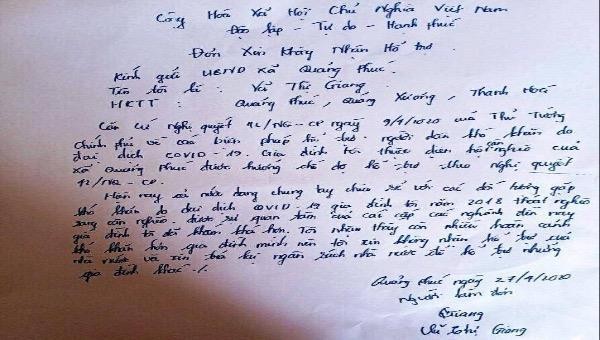 Cộng Hoà Xã Hội Chủ Nghĩa Việt Nam
Độc lập - Tự do - Hạnh phúc
Đơn Xin Không Nhận Hỗ trợ
Kính gửi UBND xã Quảng Phúc.
Tên tôi là : Vũ Thị Giang
HKTT : Quảng Phúc, Quảng Xương, Thanh Hoá
Căn cứ nghị quyết 42/NQ-CP ngày 9/4/2020 của Thủ Tướng
Chính phủ về các biện pháp hỗ trợ người dân khó khăn do
đại dịch COVID-19. Gia đình tôi thuộc diện hộ cận nghèo của
xã Quảng Phúc được hưởng chế độ hỗ trợ theo nghị quyết
42/NQ-CP.
Hiện nay cả nước đang chung tay chia sẻ với các đối tượng gặp
khó khăn do đại dịch COVID-19 gia đình tôi năm 2018 thoát nghèo
sang cận nghèo. được sự quan tâm của các cấp các nghành đến nay
gia đình tôi đã khấm khá hơn. Tôi nhận thấy còn nhiều hoàn cảnh
khó khăn hơn gia đình mình nên tôi xin không nhận hỗ trợ của
nhà nước và xin trả lại ngân sách nhà nước để hỗ trợ những
gia đình khác ./.
Quảng Phúc ngày 27/4/2020
Người làm đơn
Giang
Vũ Thị Giang